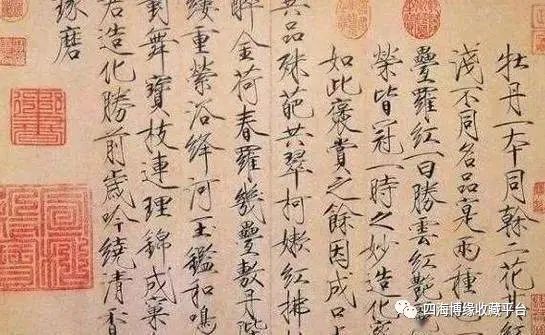 牡丹一本同榦二花
淺不同名品寔兩種
疊羅紅一曰勝雲紅艷
榮皆冠一時之妙造化
如此褒賞之餘因成口
品殊葩共翠柯嫩紅拂
醉金荷春羅幾疊敷丹
縷重縈浴絳河玉鑑和鳴
對舞寶枝連理錦成窠
君造化勝前歲吟繞清香
琢磨
四海博缘收藏平台